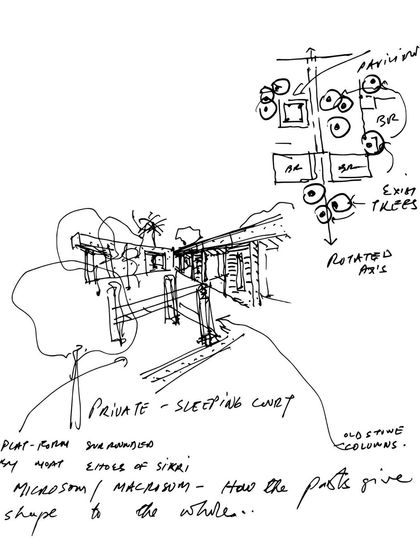 PAVILION
BR
BR
BR
EXIST
TREES
ROTATED
AXIS
PRIVATE - SLEEPING COURT
OLD STONE
COLUMNS.
PLAT-FORM SURROUNDED
BY MOAT ECHOES OF SIKRI
MICROSOM / MACROSOM - How the parts give
shape to the whole..